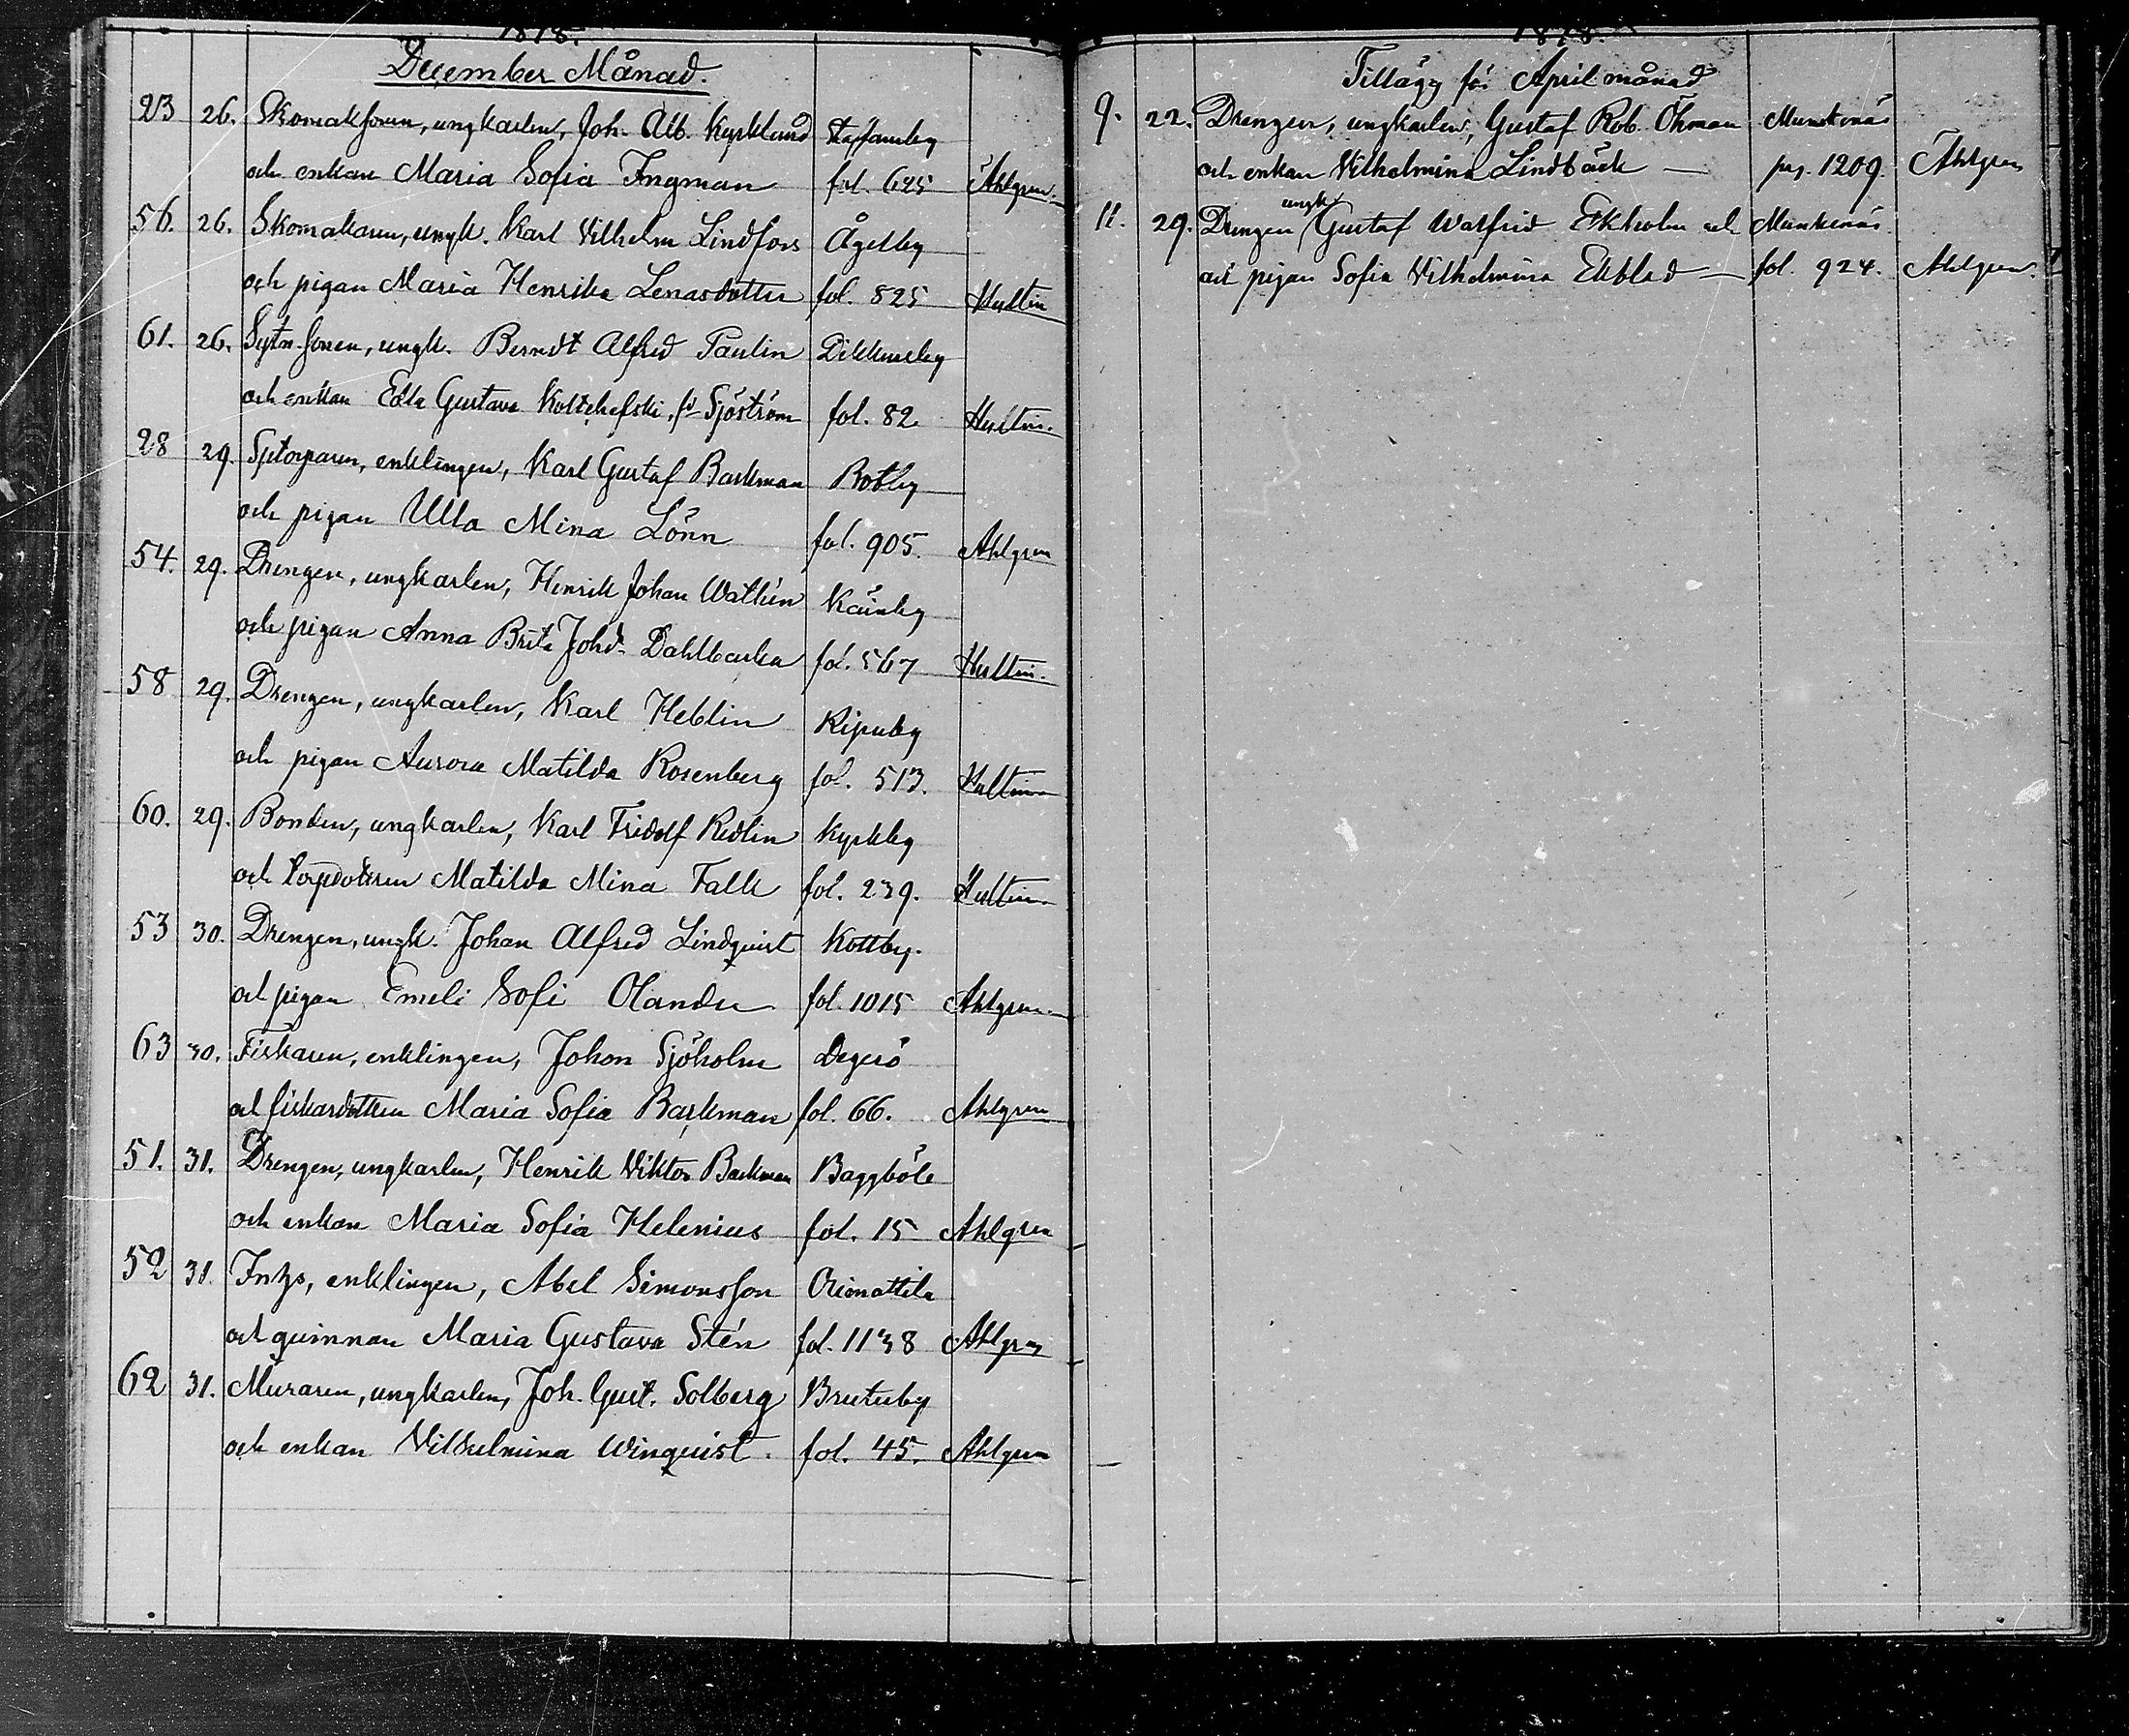 1878.
December Månad.
23 26. Skomaksonen, ungkarlen, Joh. Alb. Kyrklund Staffansby
och enkan Maria Sofia Ingman fol. 625 Ahlgren.
56. 26. Skomakaren, ungk. Karl Vilhelm Lindfors Ågelby
och pigan Maria Henrika Lenasdotter fol. 825 Hultin
61. 26. Sytn. sonen, ungk. Berndt Alfred Paulin Dickursby
och enkan Edla Gustava Koltchefski, f. Sjöström fol. 82. Hultin.
28 29. Sjtorparen, enklingen, Karl Gustaf Backman Botby
och pigan Ulla Mina Lönn fol. 905. Ahlgren
54. 29. Drengen, ungkarlen, Henrik Johan Wallin
och pigan Anna Brita Johd. Dahlbacka fol. 567 Hultin.
58 29. Drengen, ungkarlen, Karl Heblin Ripuby
och pigan Aurora Matilda Rosenberg fol. 513. Hultin
60. 29. Bonden, ungkarlen, Karl Fridolf Redlin Kyrkby
och torpdottren Matilda Mina Falk fol. 239. Hultin.
53 30. Drengen, ungk. Johan Alfred Lindquist Kottby.
och pigan Emeli Sofi Olander fol. 1015 Ahlgren.
63 30. Fiskaren, enklingen, Johan Sjöholm Degerö
och fiskardottren Maria Sofia Backman fol. 66. Ahlgren
51. 31. Drengen, ungkarlen, Henrik Viktor Backman Baggböle
och enkan Maria Sofia Helenius fol. 15 Ahlgren
52 31. Inhys, enklingen, Abel Simonsson Orimattila
och quinnan Maria Gustava Stén fol. 1138 Ahlgren
62 31. Muraren, ungkarlen, Joh. Gust. Solberg Brutuby
och enkan Vilhelmina Winquist. fol. 45. Ahlgren
1878.
Tillägg för April månad
9. 22. Drengen, ungkarlen, Gustaf Rob. Öhman Munksnäs
och enkan Vilhelmina Lindbäck — pag. 1209. Ahlgren
11. 29. Drengen ungk. Gustaf Walfrid Ekholm och Munksnäs.
och pigan Sofia Vilhelmina Ekblad — fol. 924. Ahlgren.